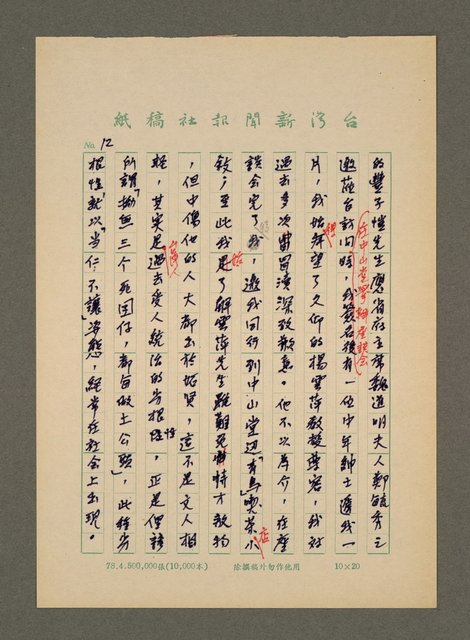 台灣新聞報社稿紙
No. 12
的豐子愷先生應省府主席魏道明夫人鄭毓秀之
邀蒞台訪問時，我簽名後有一位中年紳士遞我一
在中山堂舉辦座談會
片，我始拜望了久仰的楊雲萍教授豐容，我对
過去多次冒瀆深致歉意。他不以為介，在座
談會完了我，邀我同行到中山堂辺「有馬」喫茶小
店
敘；至此我是了解雲萍先生雖難免恃才傲物
始
，但中傷他的人大都出於妬賢，這不是文人相
輕，其实是過去產人統治的劣根性，正是俚諺
所謂「拗無三个死囝仔，都旬做土公頭」，此種劣
根性就以「当仁不讓」姿態，經常在社會上出現。
78.4.500,000張(10,000本)
除撰稿外勿作他用
10×20